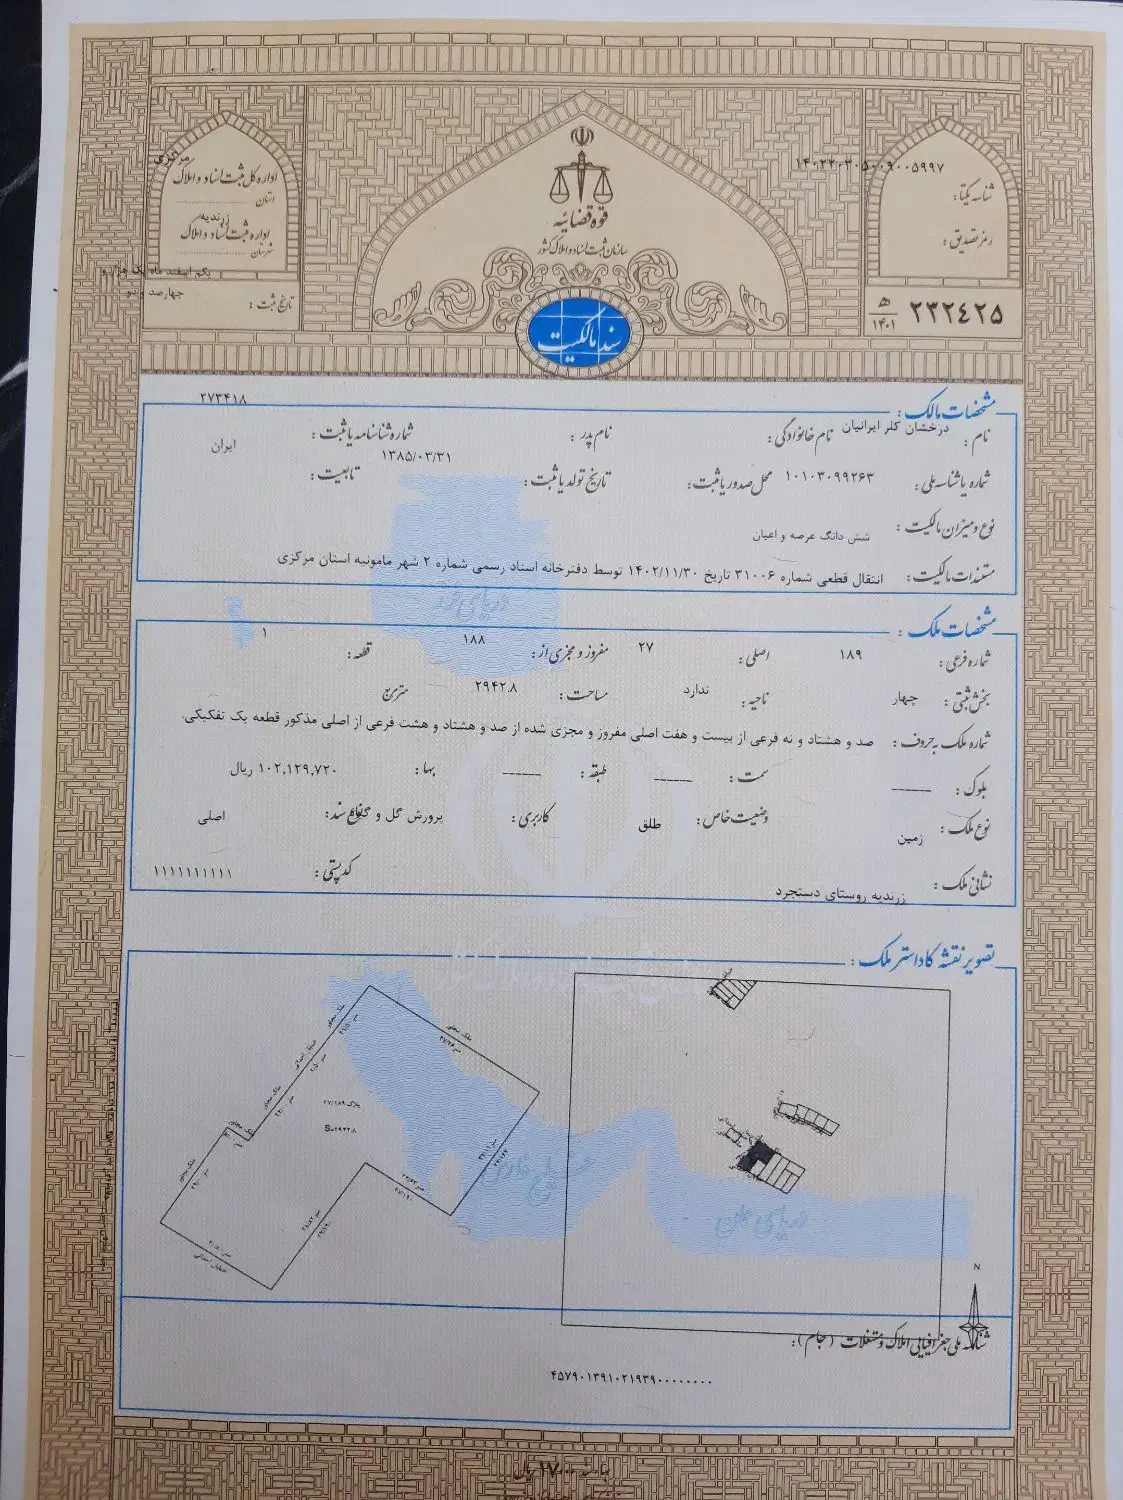 مرکزی
اداره کل ثبت اسناد و املاک
استان
زرندیه
اداره ثبت اسناد و املاک
شهرستان
یکم اسفند ماه یک هزار و
چهارصد و دو
تاریخ ثبت :
قوه قضائیه
سازمان ثبت اسناد و املاک کشور
سند مالکیت
۱۴۰۲۲۰۳۰۵۰۰۹۰۰۵۹۹۷
شناسه یکتا:
رمز تصدیق :
۲۳۲۴۲۵ ه‍ ۱۴۰۱
مشخصات مالک :
۲۷۳۴۱۸
نام : درخشان کلر ایرانیان نام خانوادگی : نام پدر : شماره شناسنامه یا ثبت :
شماره یا شناسه ملی : ۱۰۱۰۳۰۹۹۲۶۳ محل صدور یا ثبت : تاریخ تولد یا ثبت : ۱۳۸۵/۰۳/۳۱ تابعیت : ایران
نوع و میزان مالکیت : شش دانگ عرصه و اعیان
مستندات مالکیت : انتقال قطعی شماره ۳۱۰۰۶ تاریخ ۱۴۰۲/۱۱/۳۰ توسط دفترخانه اسناد رسمی شماره ۲ شهر مامونیه استان مرکزی
دریای خزر
مشخصات ملک :
شماره فرعی : ۱۸۹ اصلی : ۲۷ مفروز و مجزی از : ۱۸۸ قطعه : ۱
بخش ثبتی : چهار ناحیه : ندارد مساحت : ۲۹۴۲.۸ متر مربع
شماره ملک به حروف : صد و هشتاد و نه فرعی از بیست و هفت اصلی مفروز و مجزی شده از صد و هشتاد و هشت فرعی از اصلی مذکور قطعه یک تفکیکی.
بلوک : ------ سمت : ------ طبقه : ------ بها : ۱۰۲,۱۲۹,۷۲۰ ریال
نوع ملک : زمین وضعیت خاص : طلق کاربری : پرورش گل و گیاه نوع سند : اصلی
نشانی ملک : زرندیه روستای دستجرد کد پستی : ۱۱۱۱۱۱۱۱۱۱
تصویر نقشه کاداستر ملک :
پلاک ۲۷/۱۸۹
S=۲۹۴۲.۸
خلیج فارس
دریای عمان
N
شناسه ملی جغرافیایی املاک و مستغلات (جام) :
۴۵۷۹۰۱۳۹۱۰۲۱۹۳۹۰۰۰۰۰۰۰۰